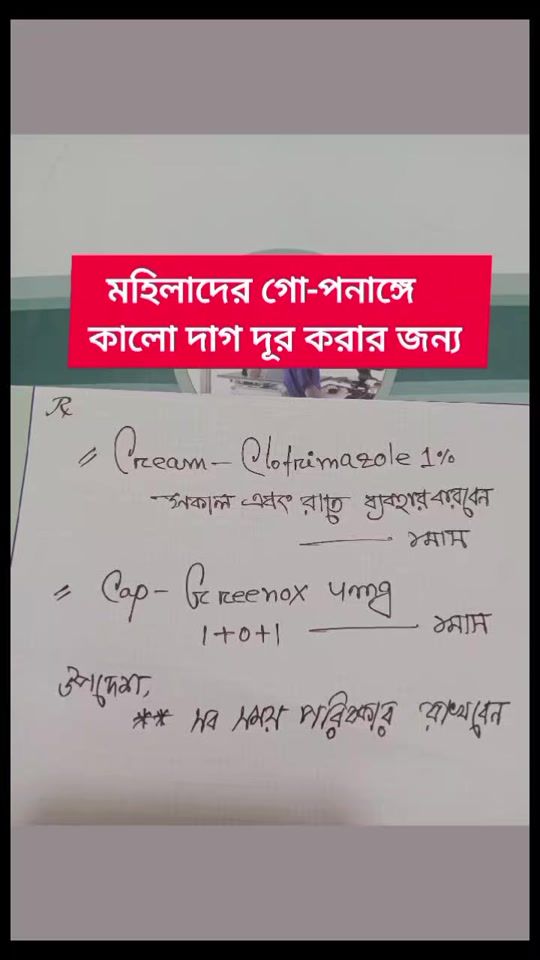 মহিলাদের গো-পনাঙ্গে
কালো দাগ দূর করার জন্য
Rx
Cream - Clotrimazole 1%
সকাল এবং রাতে ব্যবহার করবেন
১মাস
Cap - Greenox 4mg
1+0+1 ১মাস
উপদেশ,
** সব সময় পরিষ্কার রাখবেন